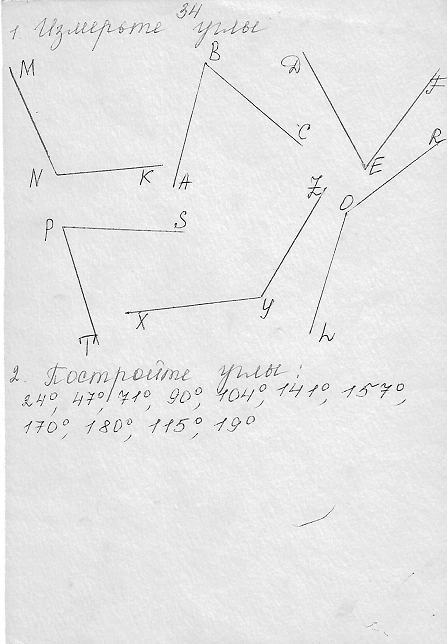 34
1 Измерьте углы
M B D F
C R
N K A E
Z O
P S
X Y
T L
2. Постройте углы:
24°, 47°, 71°, 90°, 104°, 141°, 157°,
170°, 180°, 115°, 19°